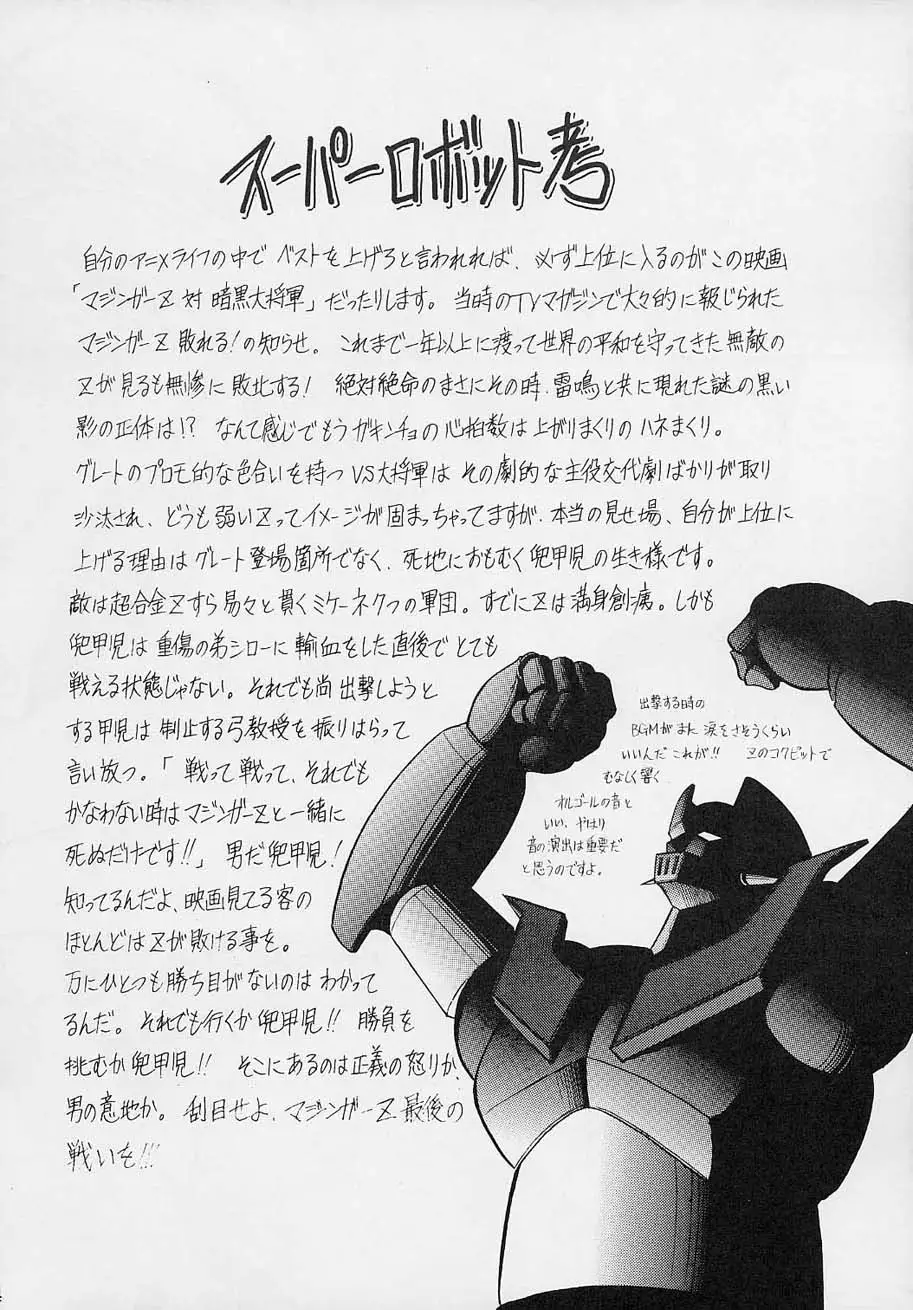 スーパーロボット考
自分のアニメライフの中で ベストを上げろと言われれば、必ず上位に入るのがこの映画
「マジンガーZ 対 暗黒大将軍」だったりします。 当時のTVマガジンで大々的に報じられた
マジンガーZ 敗れる!の知らせ。 これまで一年以上に渡って世界の平和を守ってきた無敵の
Zが見るも無惨に敗北する! 絶対絶命のまさにその時、雷鳴と共に現れた謎の黒い
影の正体は!? なんて感じでもうガキンチョの心拍数は上がりまくりのハネまくり。
グレートのプロモ的な色合いを持つ VS大将軍は その劇的な主役交代劇ばかりが取り
沙汰され、どうも弱いZってイメージが固まっちゃってますが、本当の見せ場、自分が上位に
上げる理由はグレート登場箇所でなく、死地におもむく兜甲児の生き様です。
敵は超合金Zすら易々と貫くミケーネ七つの軍団。すでにZは満身創痍。しかも
兜甲児は 重傷の弟シローに 輸血をした直後で とても
戦える状態じゃない。それでも尚 出撃しようと
する甲児は 制止する弓教授を 振りはらって
言い放つ。「 戦って戦って、それでも
かなわない時は マジンガーZと一緒に
死ぬだけです!!」 男だ兜甲児!
知ってるんだよ、映画見てる客の
ほとんどは Zが敗ける事を。
万にひとつも勝ち目がないのは わかって
るんだ。 それでも行くか兜甲児!! 勝負を
挑むか兜甲児!! そこにあるのは正義の怒りか、
男の意地か。 刮目せよ、マジンガーZ 最後の
戦いを!!!
出撃する時の
BGMがまた 涙をさそうくらい
いいんだ これが!! Zのコクピットで
むなしく響く
オルゴールの音と
いい、やはり
音の演出は重要だ
と思うのですよ。